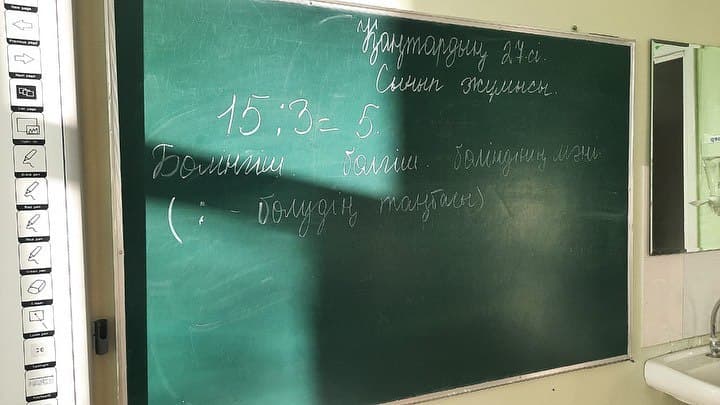 Қаңтардың 27сі.
Сынып жұмысы.
15 : 3 = 5.
Бөлінгіш бөлгіш. бөліндінің мәні.
( : - бөлудің таңбасы)